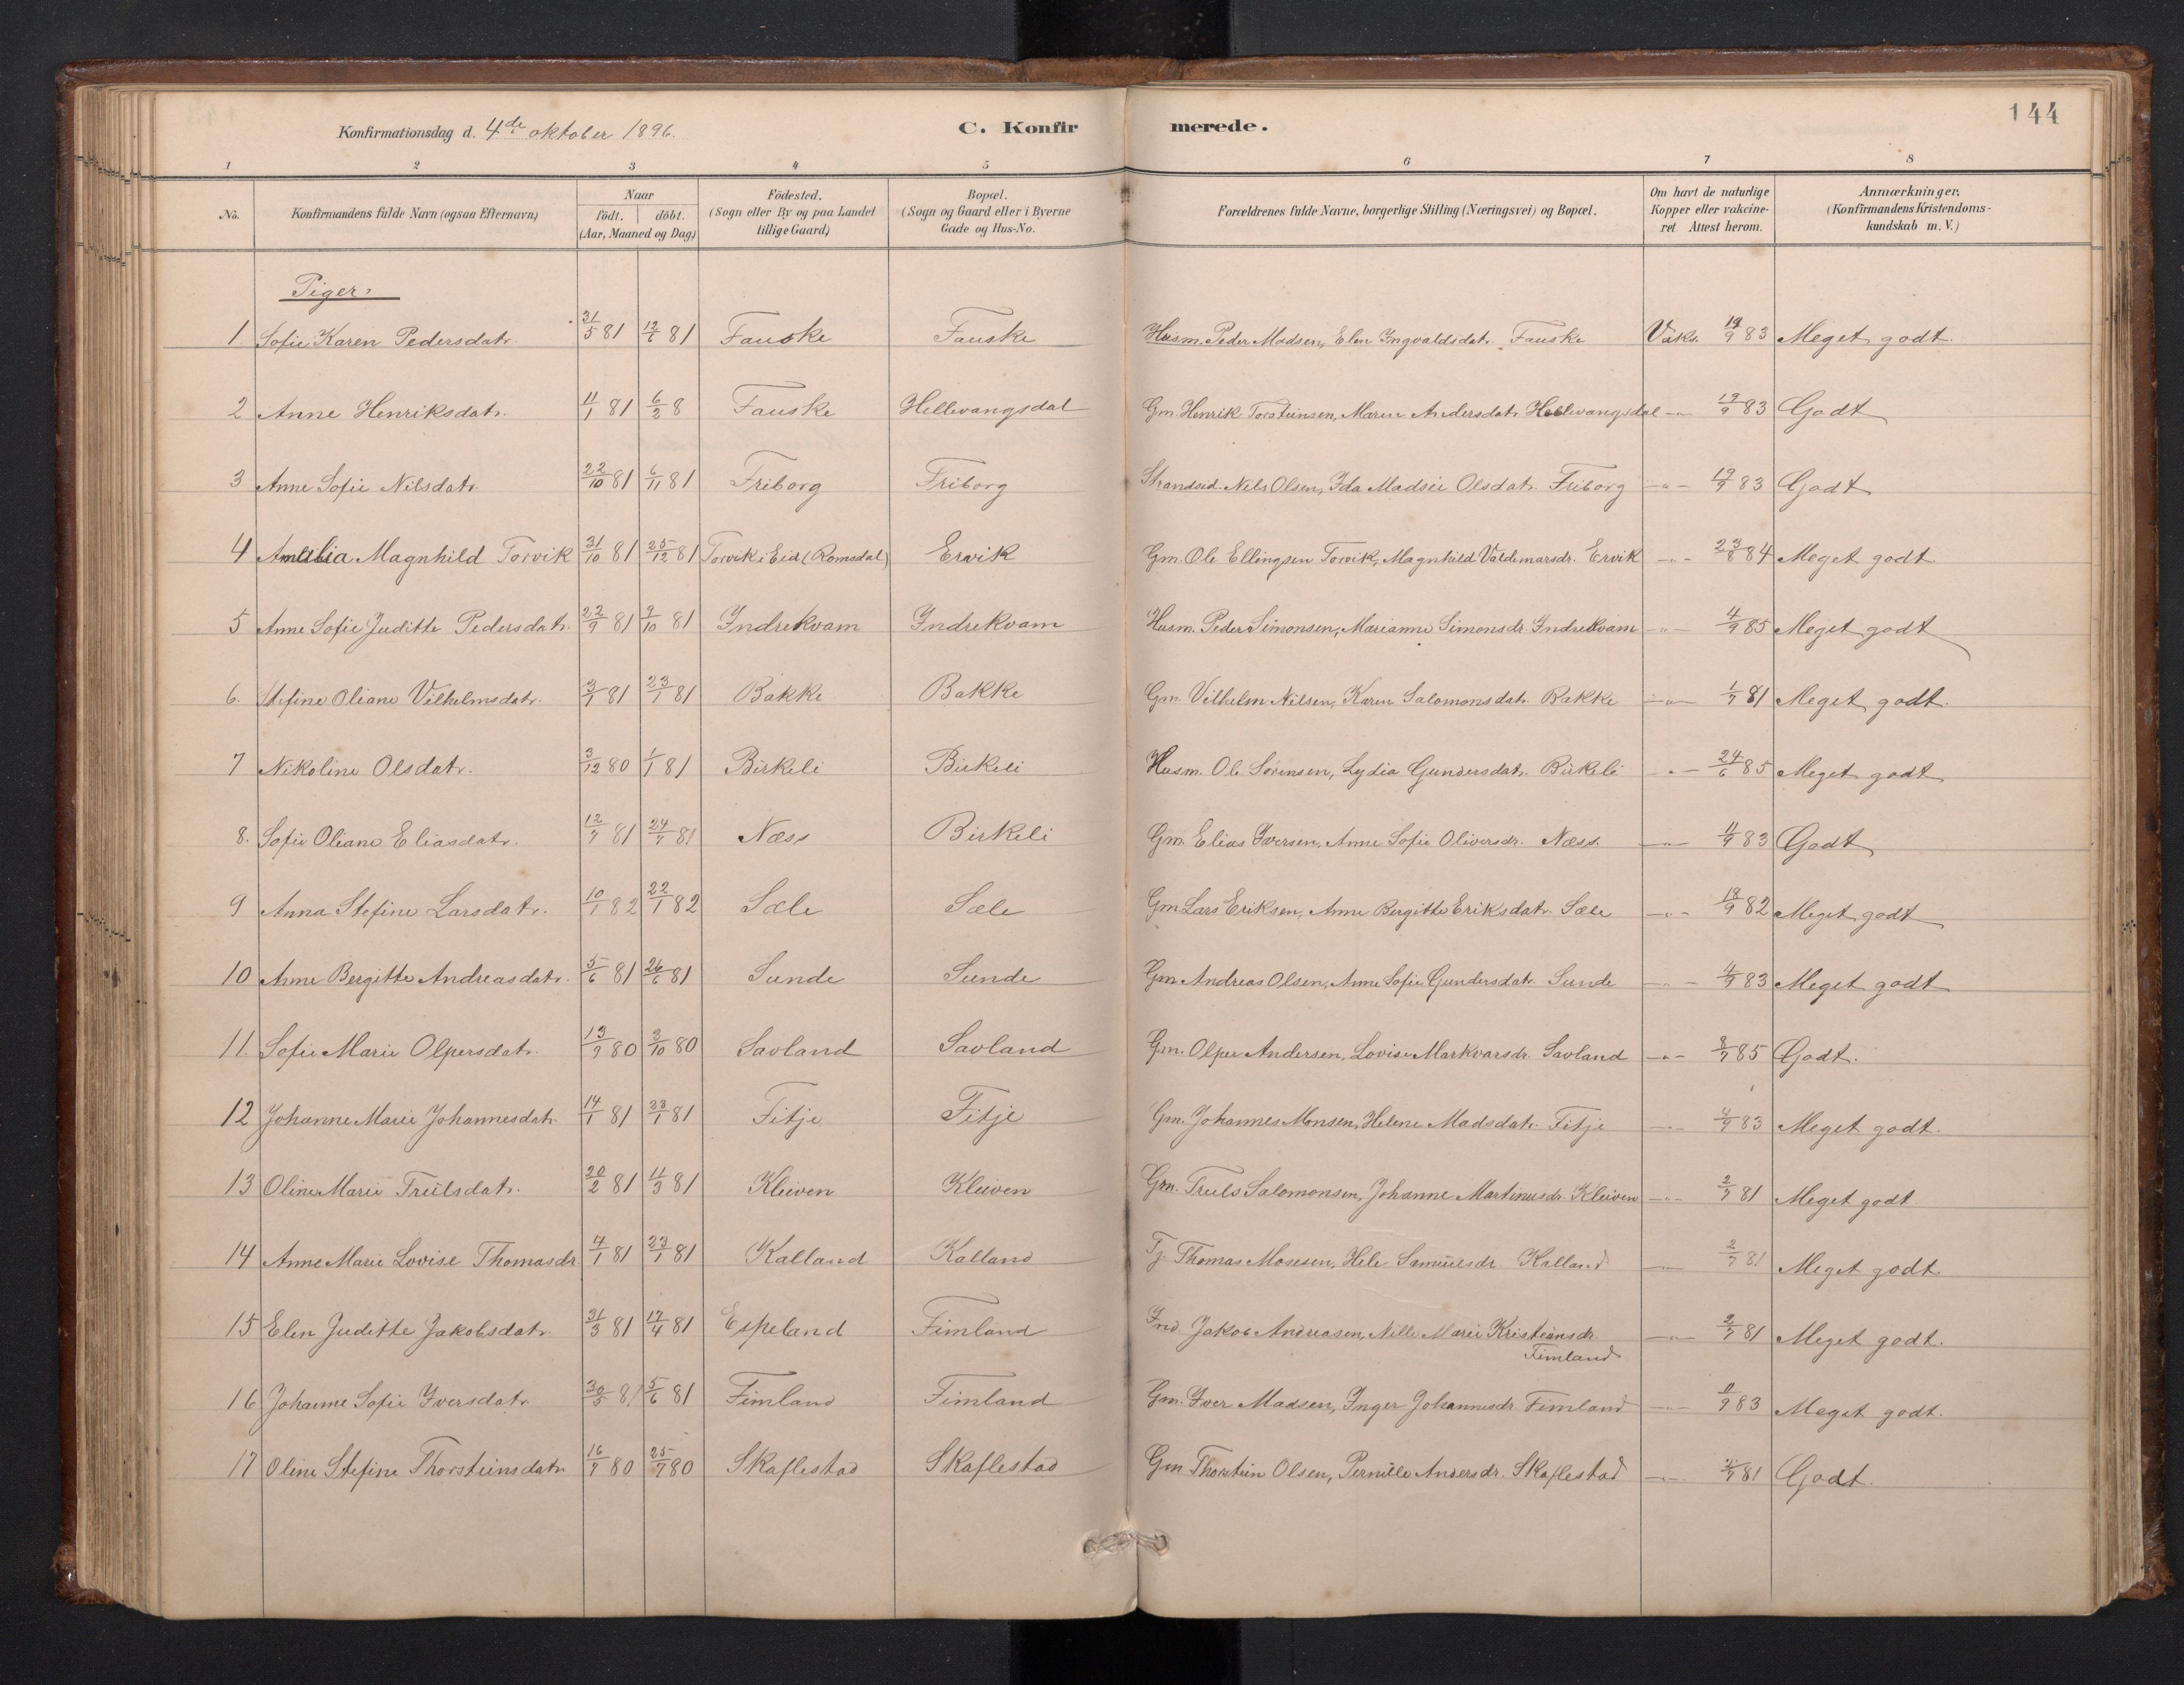 144
Konfirmationsdag d. 4de oktober 1896. C. Konfirmerede.
1 2 3 4 5 6 7 8
No. Konfirmandens fulde Navn (ogsaa Efternavn) Naar födt. döbt. (Aar, Maaned og Dag) Födested. (Sogn eller By og paa Landet tillige Gaard) Bopæl. (Sogn og Gaard eller i Byerne Gade og Hus-No. Forældrenes fulde Navne, borgerlige Stilling (Næringsvei) og Bopæl. Om havt de naturlige Kopper eller vakcineret. Attest herom. Anmærkninger. (Konfirmandens Kristendomskundskab m. V.)
Piger:
1 Sofie Karen Pedersdatr. 31/5 81 12/6 81 Fauske Fauske Husm. Peder Madsen, Elen Ingvaldsdatr. Fauske Vaks. 19/9 83 Meget godt.
2 Anne Henriksdatr. 11/1 81 6/2 8 Fauske Hellevangsdal Gm. Henrik Torsteinsen, Maren Andersdatr. Hellevangsdal -"- 19/9 83 Godt
3 Anne Sofie Nilsdatr. 22/10 81 6/11 81 Friborg Friborg Strandsid. Nils Olsen, Ida Madsie Olsdatr. Friborg -"- 19/9 83 Godt
4 Amalia Magnhild Torvik 31/10 81 25/12 81 Torvik i Eid (Romsdal) Ervik Gm. Ole Ellingsen Torvik, Magnhild Valdemarsdr. Ervik -"- 23/8 84 Meget godt
5 Anne Sofie Juditte Pedersdatr. 22/9 81 9/10 81 Indrekvam Indrekvam Husm. Peder Simonsen, Marianne Simonsdr. Indrekvam -"- 4/9 85 Meget godt
6. Stefine Oliane Vilhelmsdatr. 3/1 81 23/1 81 Bakke Bakke Gm. Vilhelm Nilsen, Karen Salomonsdatr. Bakke -"- 1/7 81 Meget godt.
7 Nikoline Olsdatr. 3/12 80 1/1 81 Birkeli Birkeli Husm. Ole Sørensen, Lydia Gundersdatr. Birkeli -"- 24/6 85 Meget godt
8. Sofie Oliane Eliasdatr. 12/7 81 24/7 81 Næss Birkeli Gm. Elias Iversen, Anne Sofie Oliversdr. Næss. -"- 11/9 83 Godt
9 Anna Stefine Larsdatr. 10/1 82 22/1 82 Sæle Sæle Gm Lars Eriksen, Anne Bergitte Eriksdatr. Sæle -"- 18/9 82 Meget godt
10 Anne Bergitte Andreasdatr. 5/6 81 26/6 81 Sunde Sunde Gm Andreas Olsen, Anne Sofie Gundersdatr. Sunde -"- 4/9 83 Meget godt
11. Sofie Marie Olpersdatr. 13/9 80 3/10 80 Savland Savland Gm. Olper Andersen, Lovise Markvarsdr. Savland -"- 8/7 85 Godt.
12 Johanne Marie Johannesdatr. 14/1 81 23/1 81 Fitje Fitje Gm. Johannes Monsen, Helene Madsdatr. Fitje -"- 4/9 83 Meget godt.
13 Oline Marie Trulsdatr. 20/2 81 11/3 81 Kleiven Kleiven Gm. Truls Salomonsen, Johanne Martinusdr. Kleiven -"- 2/7 81 Meget godt
14 Anne Marie Lovise Thomasdr 4/1 81 23/1 81 Kalland Kalland Tj. Thomas Mosesen, Hele Samuelsdr. Kalland -"- 2/7 81 Meget godt.
15 Elen Juditte Jakobsdatr. 31/3 81 17/4 81 Espeland Fimland Ind. Jakob Andreasen, Nille Marie Kristiansdr. Fimland -"- 2/7 81 Meget godt.
16 Johanne Sofie Iversdatr. 30/5 81 5/6 81 Fimland Fimland Gm. Iver Madsen, Inger Johannesdr. Fimland -"- 11/9 83 Meget godt.
17 Oline Stefine Thorsteinsdatr 16/7 80 25/7 80 Skaflestad Skaflestad Gm Thorstein Olsen, Pernille Andersdr. Skaflestad -"- 2/7 81 Godt.